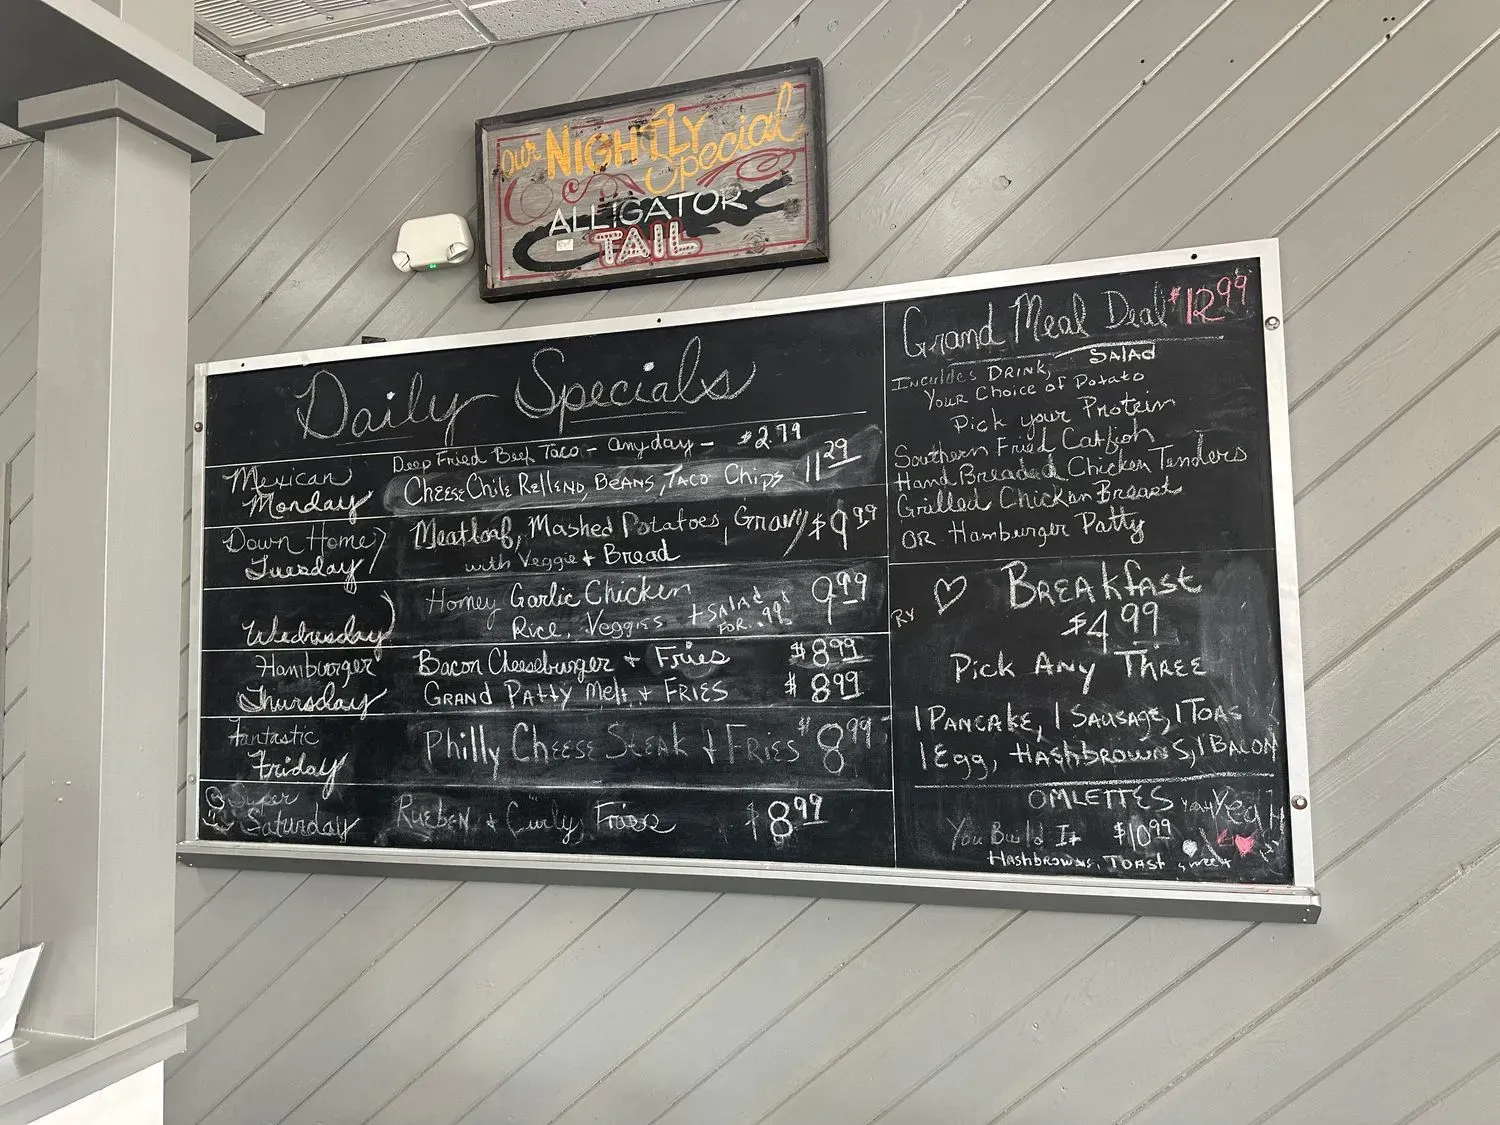 our NIGHTLY Special
ALLIGATOR
TAIL
Daily Specials
Deep Fried Beef Taco - anyday - $2.99
Mexican Monday
Cheese Chile Relleno, Beans, Taco Chips 11.29
Down Home Tuesday
Meatloaf, Mashed Potatoes, Gravy $9.99
with Veggie + Bread
Wednesday
Honey Garlic Chicken 9.99
Rice, Veggies + Salad for .99¢
Hamburger Thursday
Bacon Cheeseburger + Fries $8.99
Grand Patty Melt + Fries $8.99
Fantastic Friday
Philly Cheese Steak + Fries $8.99
Super Saturday
Rueben + Curly Fries $8.99
Grand Meal Deal $12.99
Inculdes Drink, Salad
Your Choice of Potato
Pick your Protein
Southern Fried Catfish
Hand Breaded Chicken Tenders
Grilled Chicken Breast
OR Hamburger Patty
Breakfast
$4.99
Pick Any Three
1 Pancake, 1 Sausage, 1 Toas
1 Egg, Hashbrowns, 1 Bacon
Omlettes Yeah
You Build It $10.99
Hashbrowns, Toast